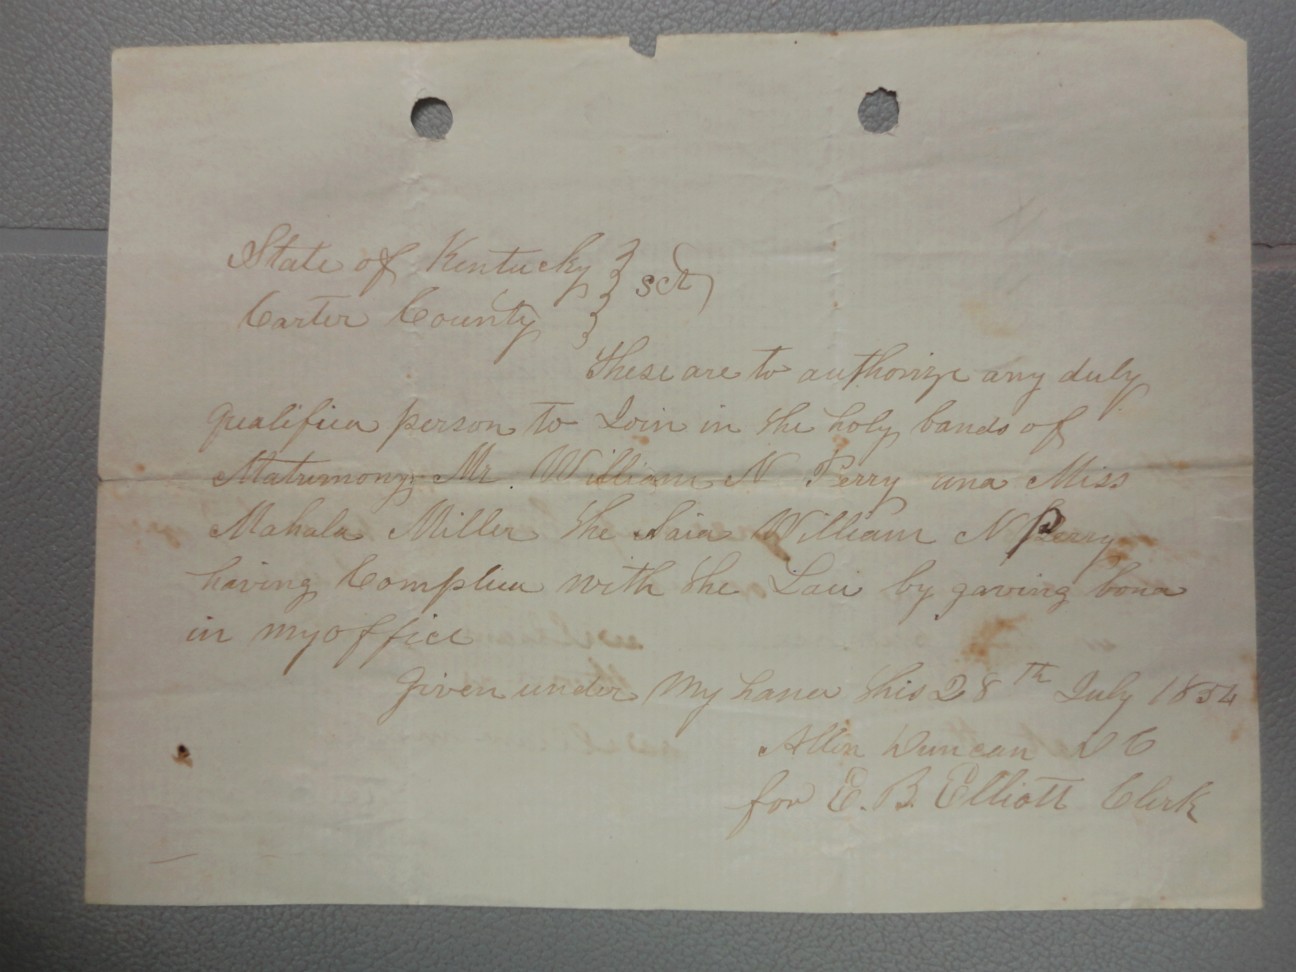 State of Kentucky } sct
Carter County }
These are to authorize any duly
qualified person to Join in the holy bands of
Matrimony Mr. William N Perry and Miss
Mahala Miller the Said William N Perry
having Complied with the Law by gaving bond
in my office
Given under My hand this 28th July 1854
Allen Duncan D C
for E. B. Elliott Clerk